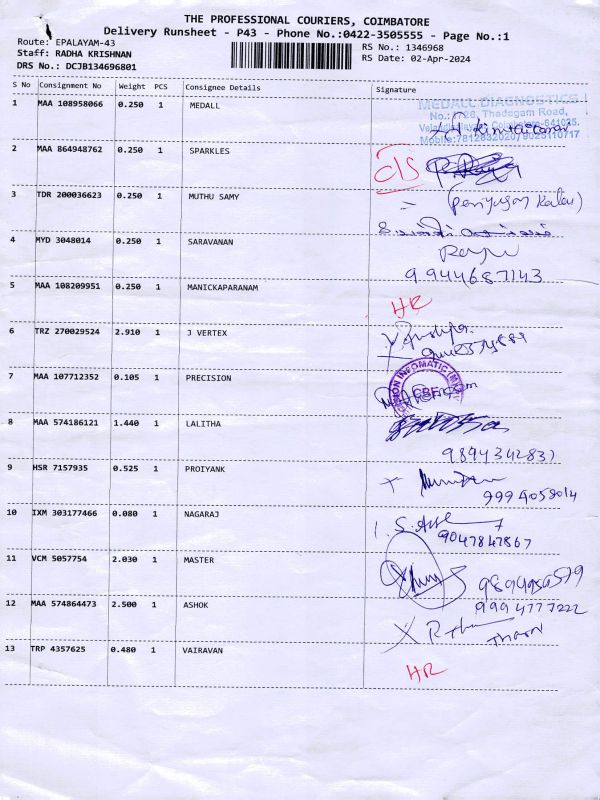 THE PROFESSIONAL COURIERS, COIMBATORE
Delivery Runsheet - P43 - Phone No.:0422-3505555 - Page No.:1
Route: EPALAYAM-43
RS No.: 1346968
Staff: RADHA KRISHNAN
RS Date: 02-Apr-2024
DRS No.: DCJB134696801
S No Consignment No Weight PCS Consignee Details Signature
1 MAA 108958066 0.250 1 MEDALL
MEDALL DIAGNOSTICS
Thadagam Road,
Coimbatore-641025.
2 MAA 864948762 0.250 1 SPARKLES
3 TDR 200036623 0.250 1 MUTHU SAMY
4 MYD 3048014 0.250 1 SARAVANAN
9944687143
5 MAA 108209951 0.250 1 MANICKAPARANAM
HR
6 TRZ 270029524 2.910 1 J VERTEX
7 MAA 107712352 0.105 1 PRECISION
CBE
8 MAA 574186121 1.440 1 LALITHA
9894342837
9 HSR 7157935 0.525 1 PROIYANK
9994058014
10 IXM 303177466 0.080 1 NAGARAJ
9047847867
11 VCM 5057754 2.030 1 MASTER
12 MAA 574864473 2.500 1 ASHOK
9994777222
13 TRP 4357625 0.480 1 VAIRAVAN
HR